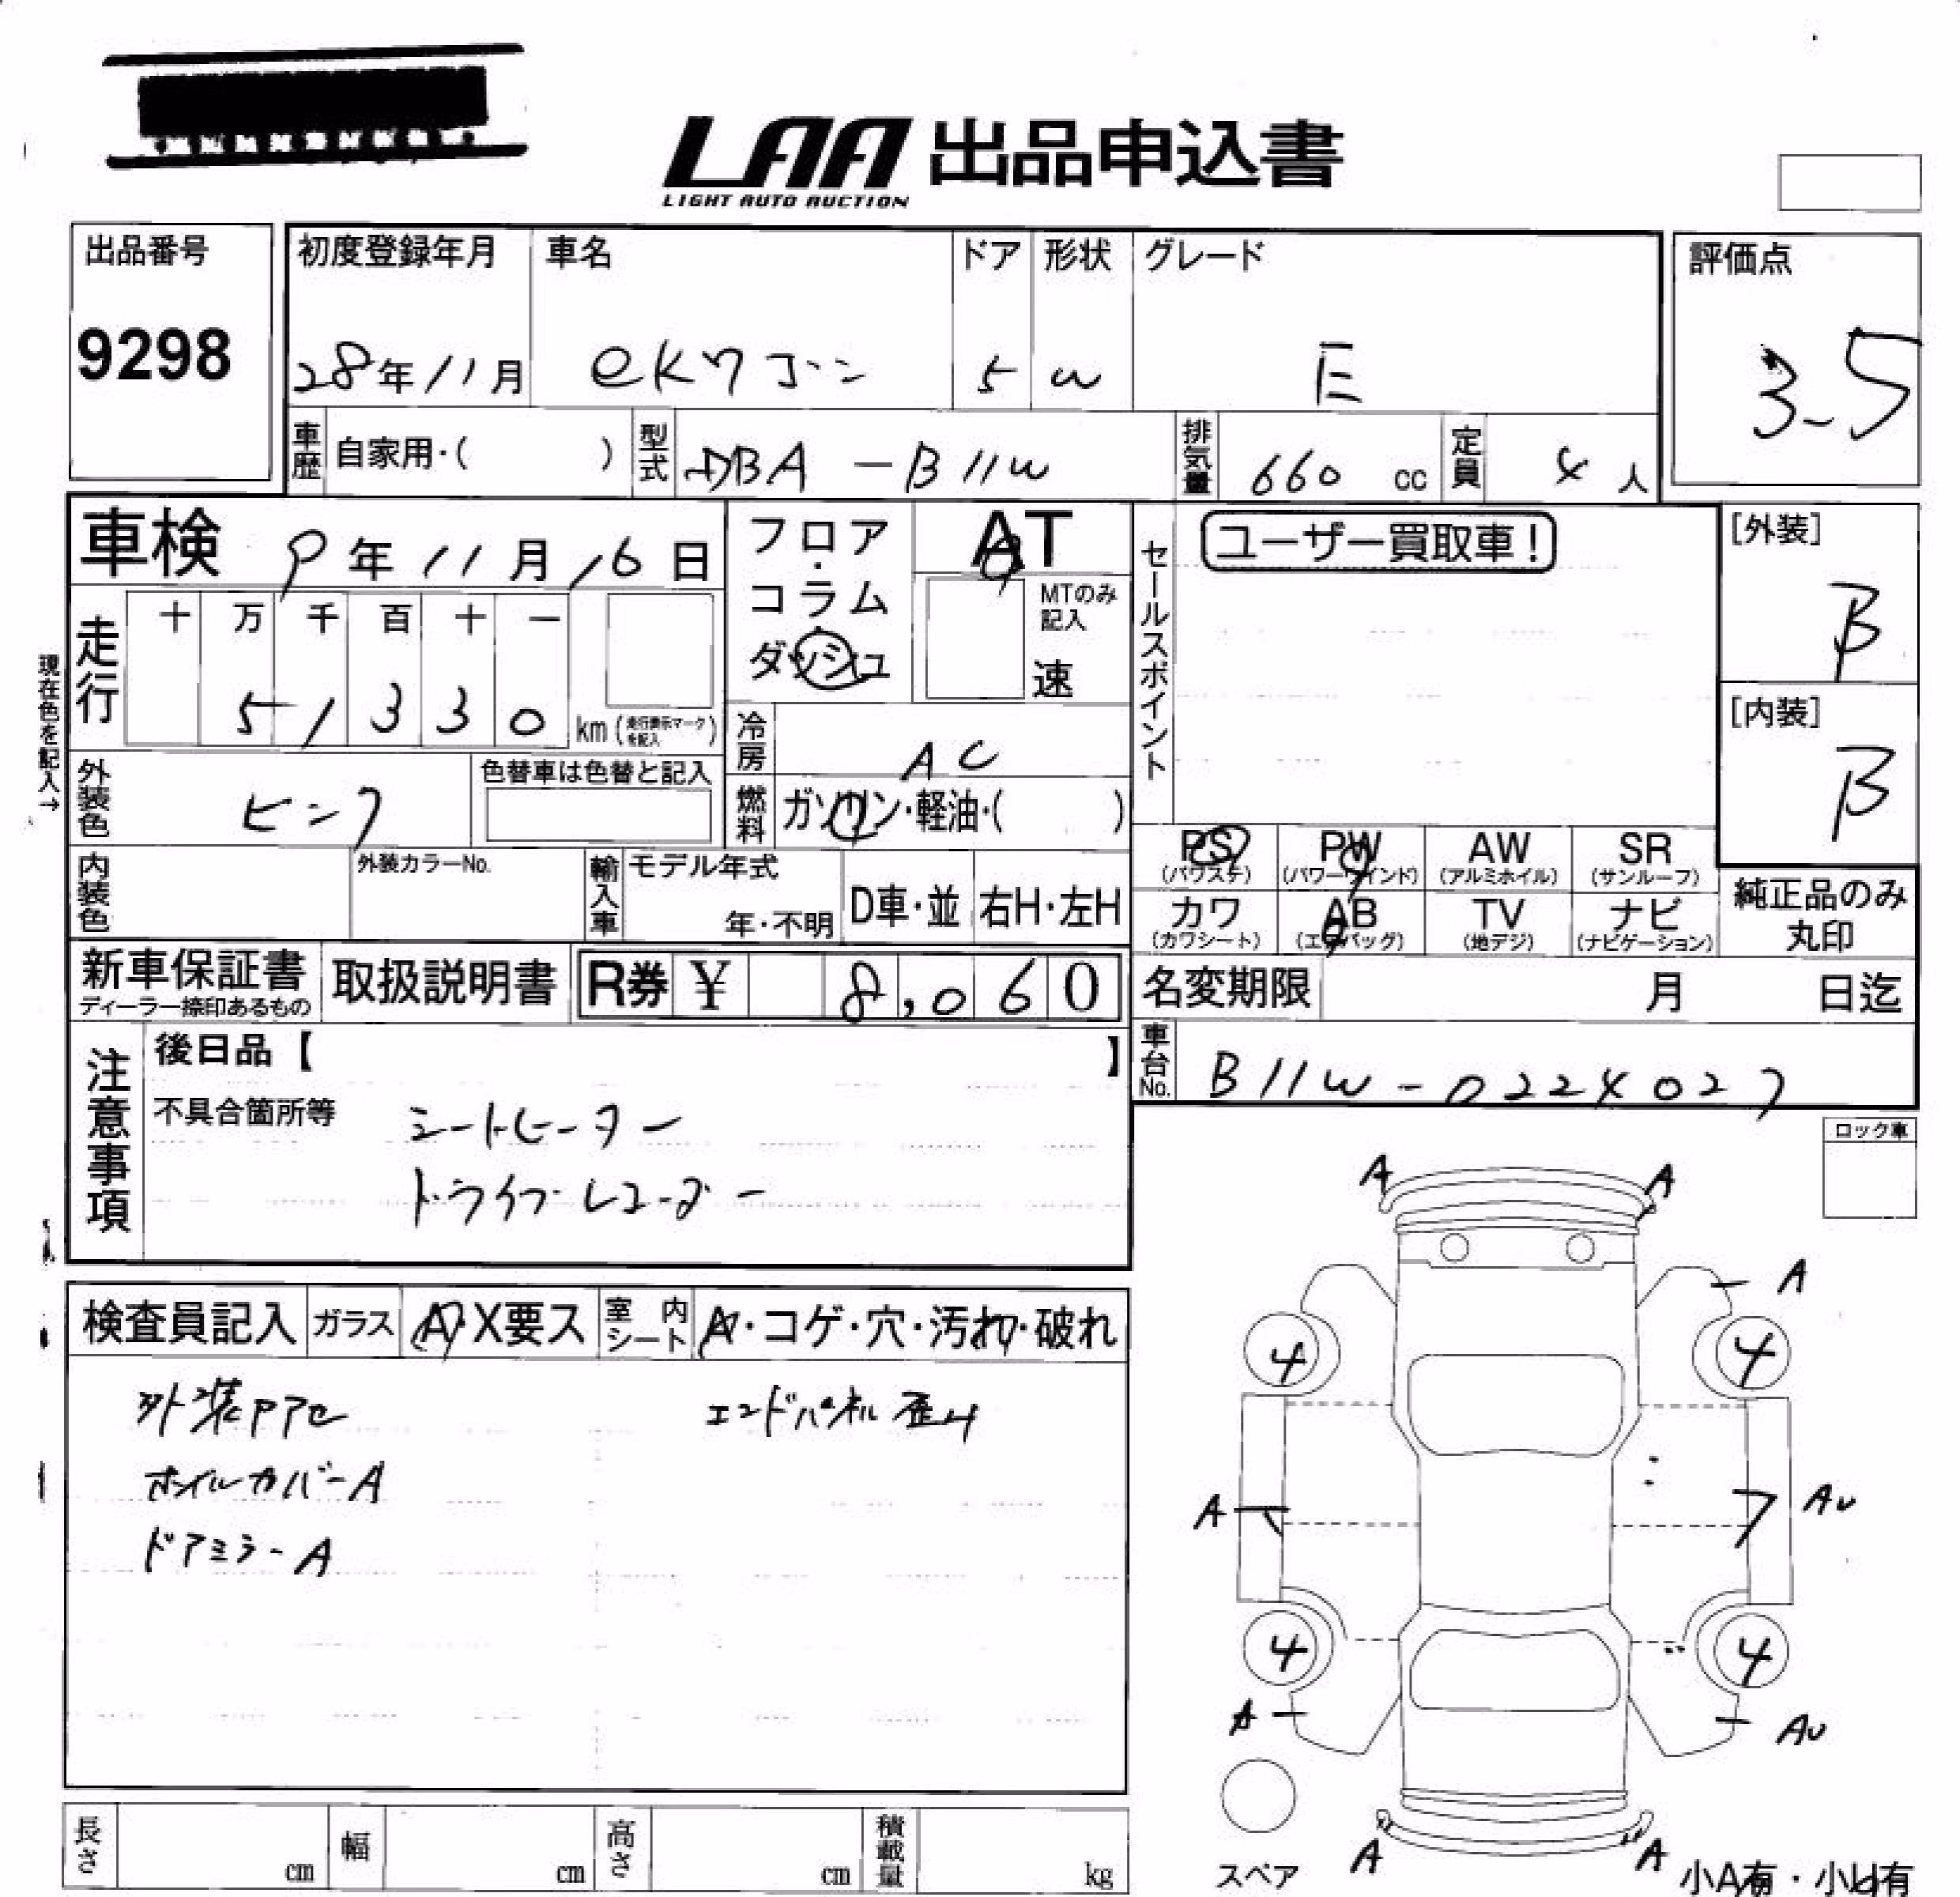 LAA 出品申込書
LIGHT AUTO AUCTION
出品番号
9298
初度登録年月
28年11月
車名
ekワゴン
ドア
5
形状
W
グレード
E
評価点
3.5
車歴 自家用・( )
型式 DBA-B11W
排気量 660 cc
定員 4 人
車検 9年11月16日
フロア・コラム ダッシュ
AT
MTのみ記入
速
セールスポイント
ユーザー買取車!
[外装]
B
[内装]
B
現在色を記入→
走行
十 万 千 百 十 一
5 1 3 3 0 km (走行表示マークを記入)
冷房 AC
燃料 ガソリン・軽油・( )
外装色 ピンク
色替車は色替と記入
内装色
外装カラーNo.
輸入車
モデル年式
年・不明
D車・並
右H・左H
PS (パワステ)
PW (パワーウインド)
AW (アルミホイル)
SR (サンルーフ)
カワ (カワシート)
AB (エアバッグ)
TV (地デジ)
ナビ (ナビゲーション)
純正品のみ丸印
新車保証書
ディーラー捺印あるもの
取扱説明書
R券 ¥ 8,060
名変期限 月 日迄
車台No. B11W-0224027
注意事項
後日品【 】
不具合箇所等
シートヒーター
ドライブレコーダー
ロック車
検査員記入
ガラス A・X要ス
室内シート A・コゲ・穴・汚れ・破れ
外装P アセ
ホイルカバーA
ドアミラーA
エンドパネル歪み
A A
A
4 4
A AU
4 4
A AU
A A
スペア
小A有・小U有
長さ cm
幅 cm
高さ cm
積載量 kg